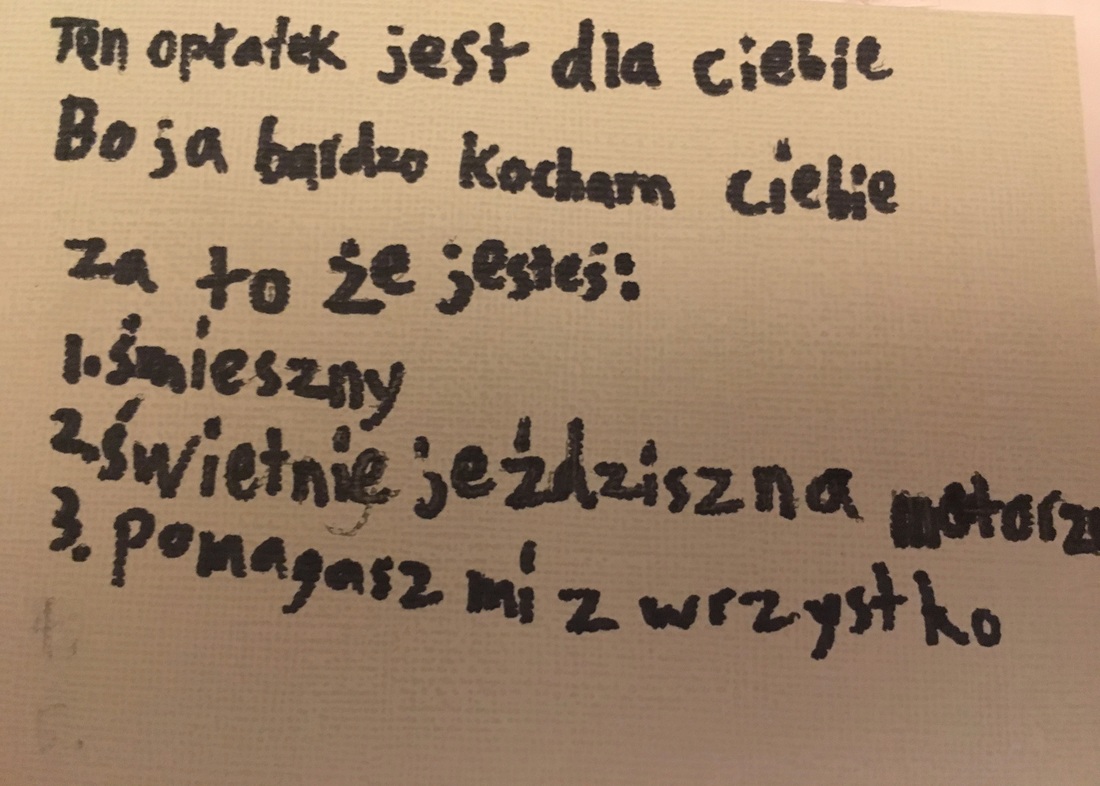 Ten opłatek jest dla ciebie
Bo ja bardzo kocham ciebie
za to że jesteś:
1. śmieszny
2. świetnie jeździsz na motorze
3. pomagasz mi z wrzystko
4.
5.